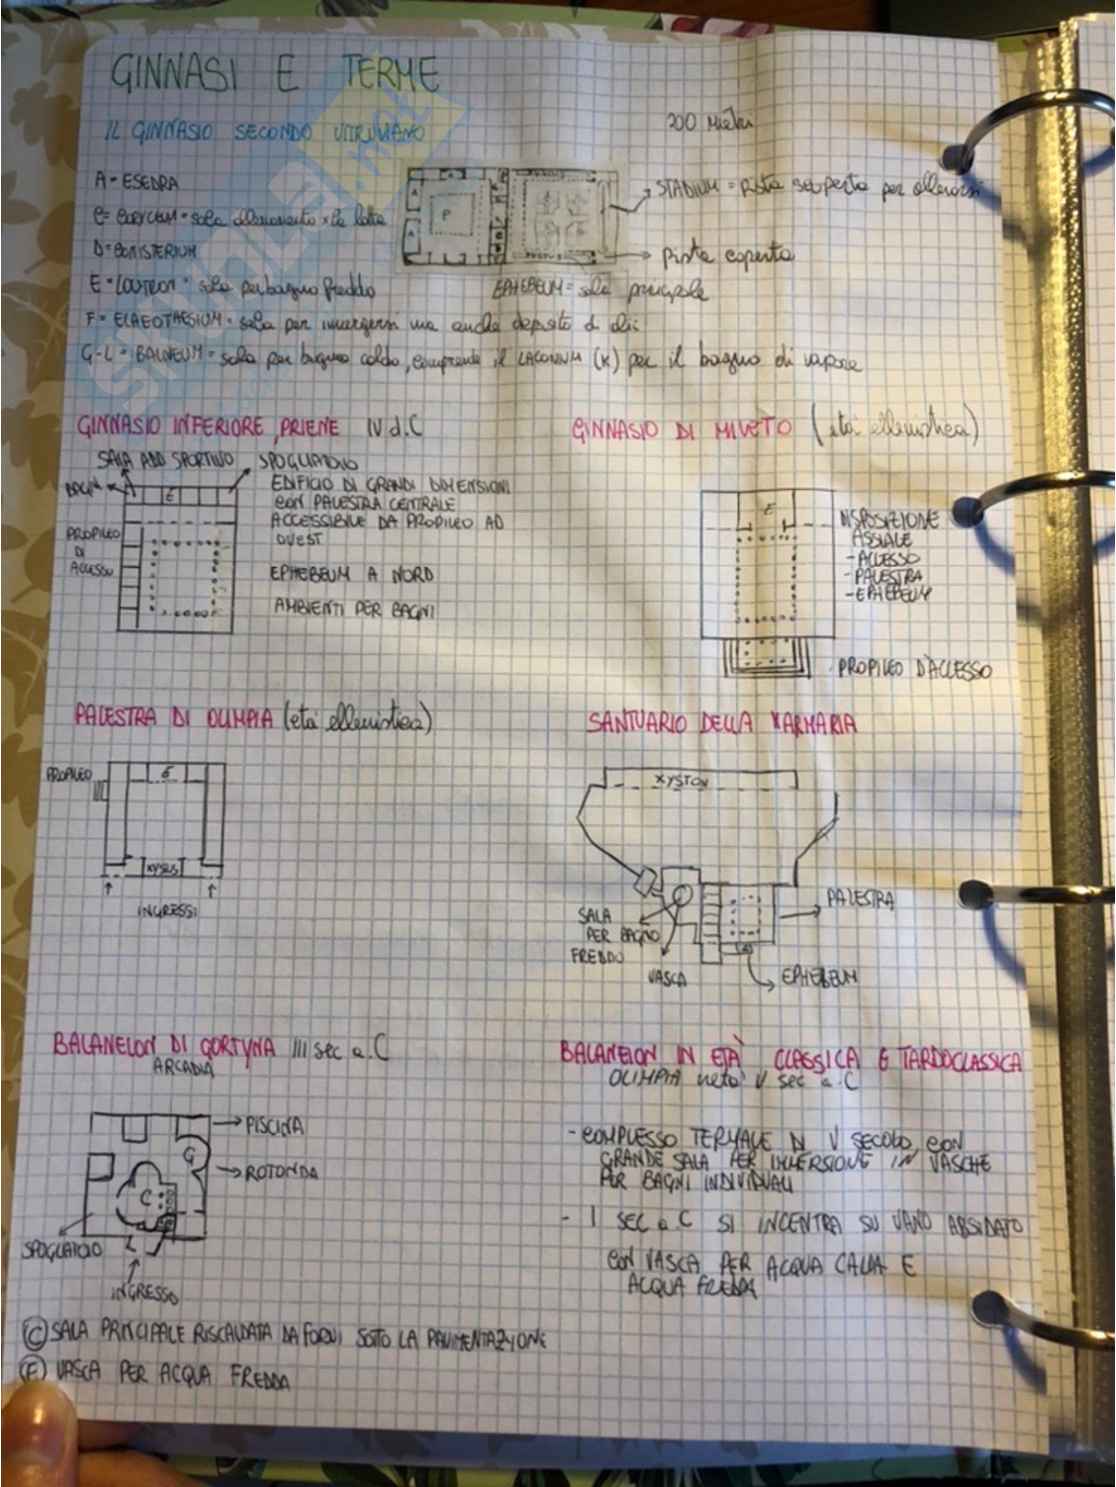 GINNASI E TERME
IL GINNASIO SECONDO VITRUVIANO
200 Metri
A = ESEDRA
C = CORYCEUM = sala allenamento x la lotta
D = CONISTERIUM
E = LOUTRON = sala per bagno freddo
F = ELAEOTHESIUM = sala per ungersi ma anche deposito di olii
G-L = BALNEUM = sala per bagno caldo, comprende il LACONIUM (K) per il bagno di vapore
P
STADIUM = Pista scoperta per allenarsi
Pista coperta
EPHEBEUM = sala principale
GINNASIO INFERIORE, PRIENE IV d.C
SALA ADD SPORTIVO SPOGLIATOIO
BAGNI
E
PROPILEO
DI
ACCESSO
EDIFICIO DI GRANDI DIMENSIONI
CON PALESTRA CENTRALE
ACCESSIBILE DA PROPILEO AD
OVEST
EPHEBEUM A NORD
AMBIENTI PER BAGNI
GINNASIO DI MILETO (età ellenistica)
E
DISPOSIZIONE
ASSIALE
- ACCESSO
- PALESTRA
- EPHEBEUM
PROPILEO D'ACCESSO
PALESTRA DI OLIMPIA (età ellenistica)
PROPILEO
E
XYSTUS
INGRESSI
SANTUARIO DELLA MARMARIA
XYSTON
PALESTRA
SALA
PER BAGNO
FREDDO
VASCA
EPHEBEUM
BALANEION DI GORTYNA III sec a.C
ARCADIA
PISCINA
G
ROTONDA
C
SPOGLIATOIO
L
INGRESSO
C SALA PRINCIPALE RISCALDATA DA FORNI SOTTO LA PAVIMENTAZIONE
F VASCA PER ACQUA FREDDA
BALANEION IN ETÀ CLASSICA E TARDOCLASSICA
OLIMPIA metà V sec a.C
- COMPLESSO TERMALE DI V SECOLO CON
GRANDE SALA PER IMMERSIONE IN VASCHE
PER BAGNI INDIVIDUALI
- I SEC a.C SI INCENTRA SU VANO ABSIDATO
CON VASCA PER ACQUA CALDA E
ACQUA FREDDA